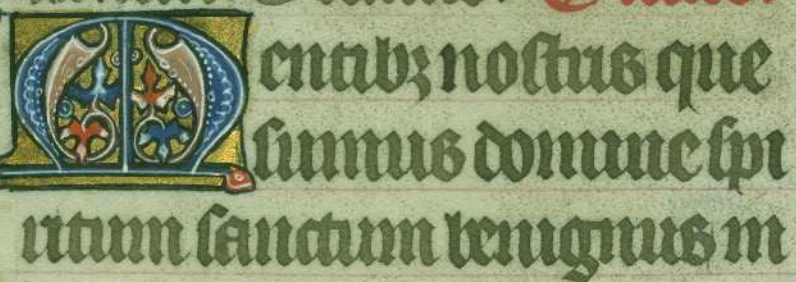 Mentibꝫ nostris que
sumus domine spi
ritum sanctum benignus in